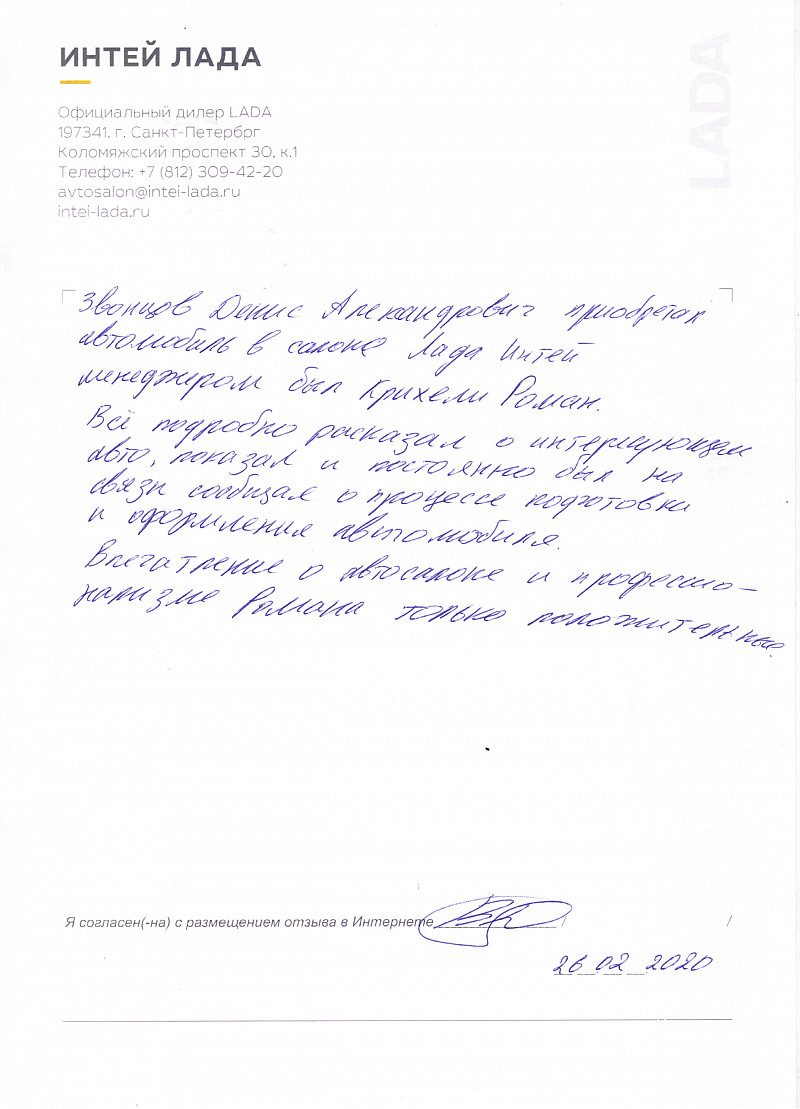 ИНТЕЙ ЛАДА
LADA
Официальный дилер LADA
197341, г. Санкт-Петербрг
Коломяжский проспект 30, к.1
Телефон: +7 (812) 309-42-20
avtosalon@intei-lada.ru
intei-lada.ru
Звонцов Денис Александрович приобретал
автомобиль в салоне Лада Интей
менеджером был Крихели Роман.
Всё подробно рассказал о интересующем
авто, показал и постоянно был на
связи сообщая о процессе подготовки
и оформления автомобиля.
Впечатление о автосалоне и профессио-
нализме Романа только положительные.
Я согласен(-на) с размещением отзыва в Интернете / /
26 02 2020